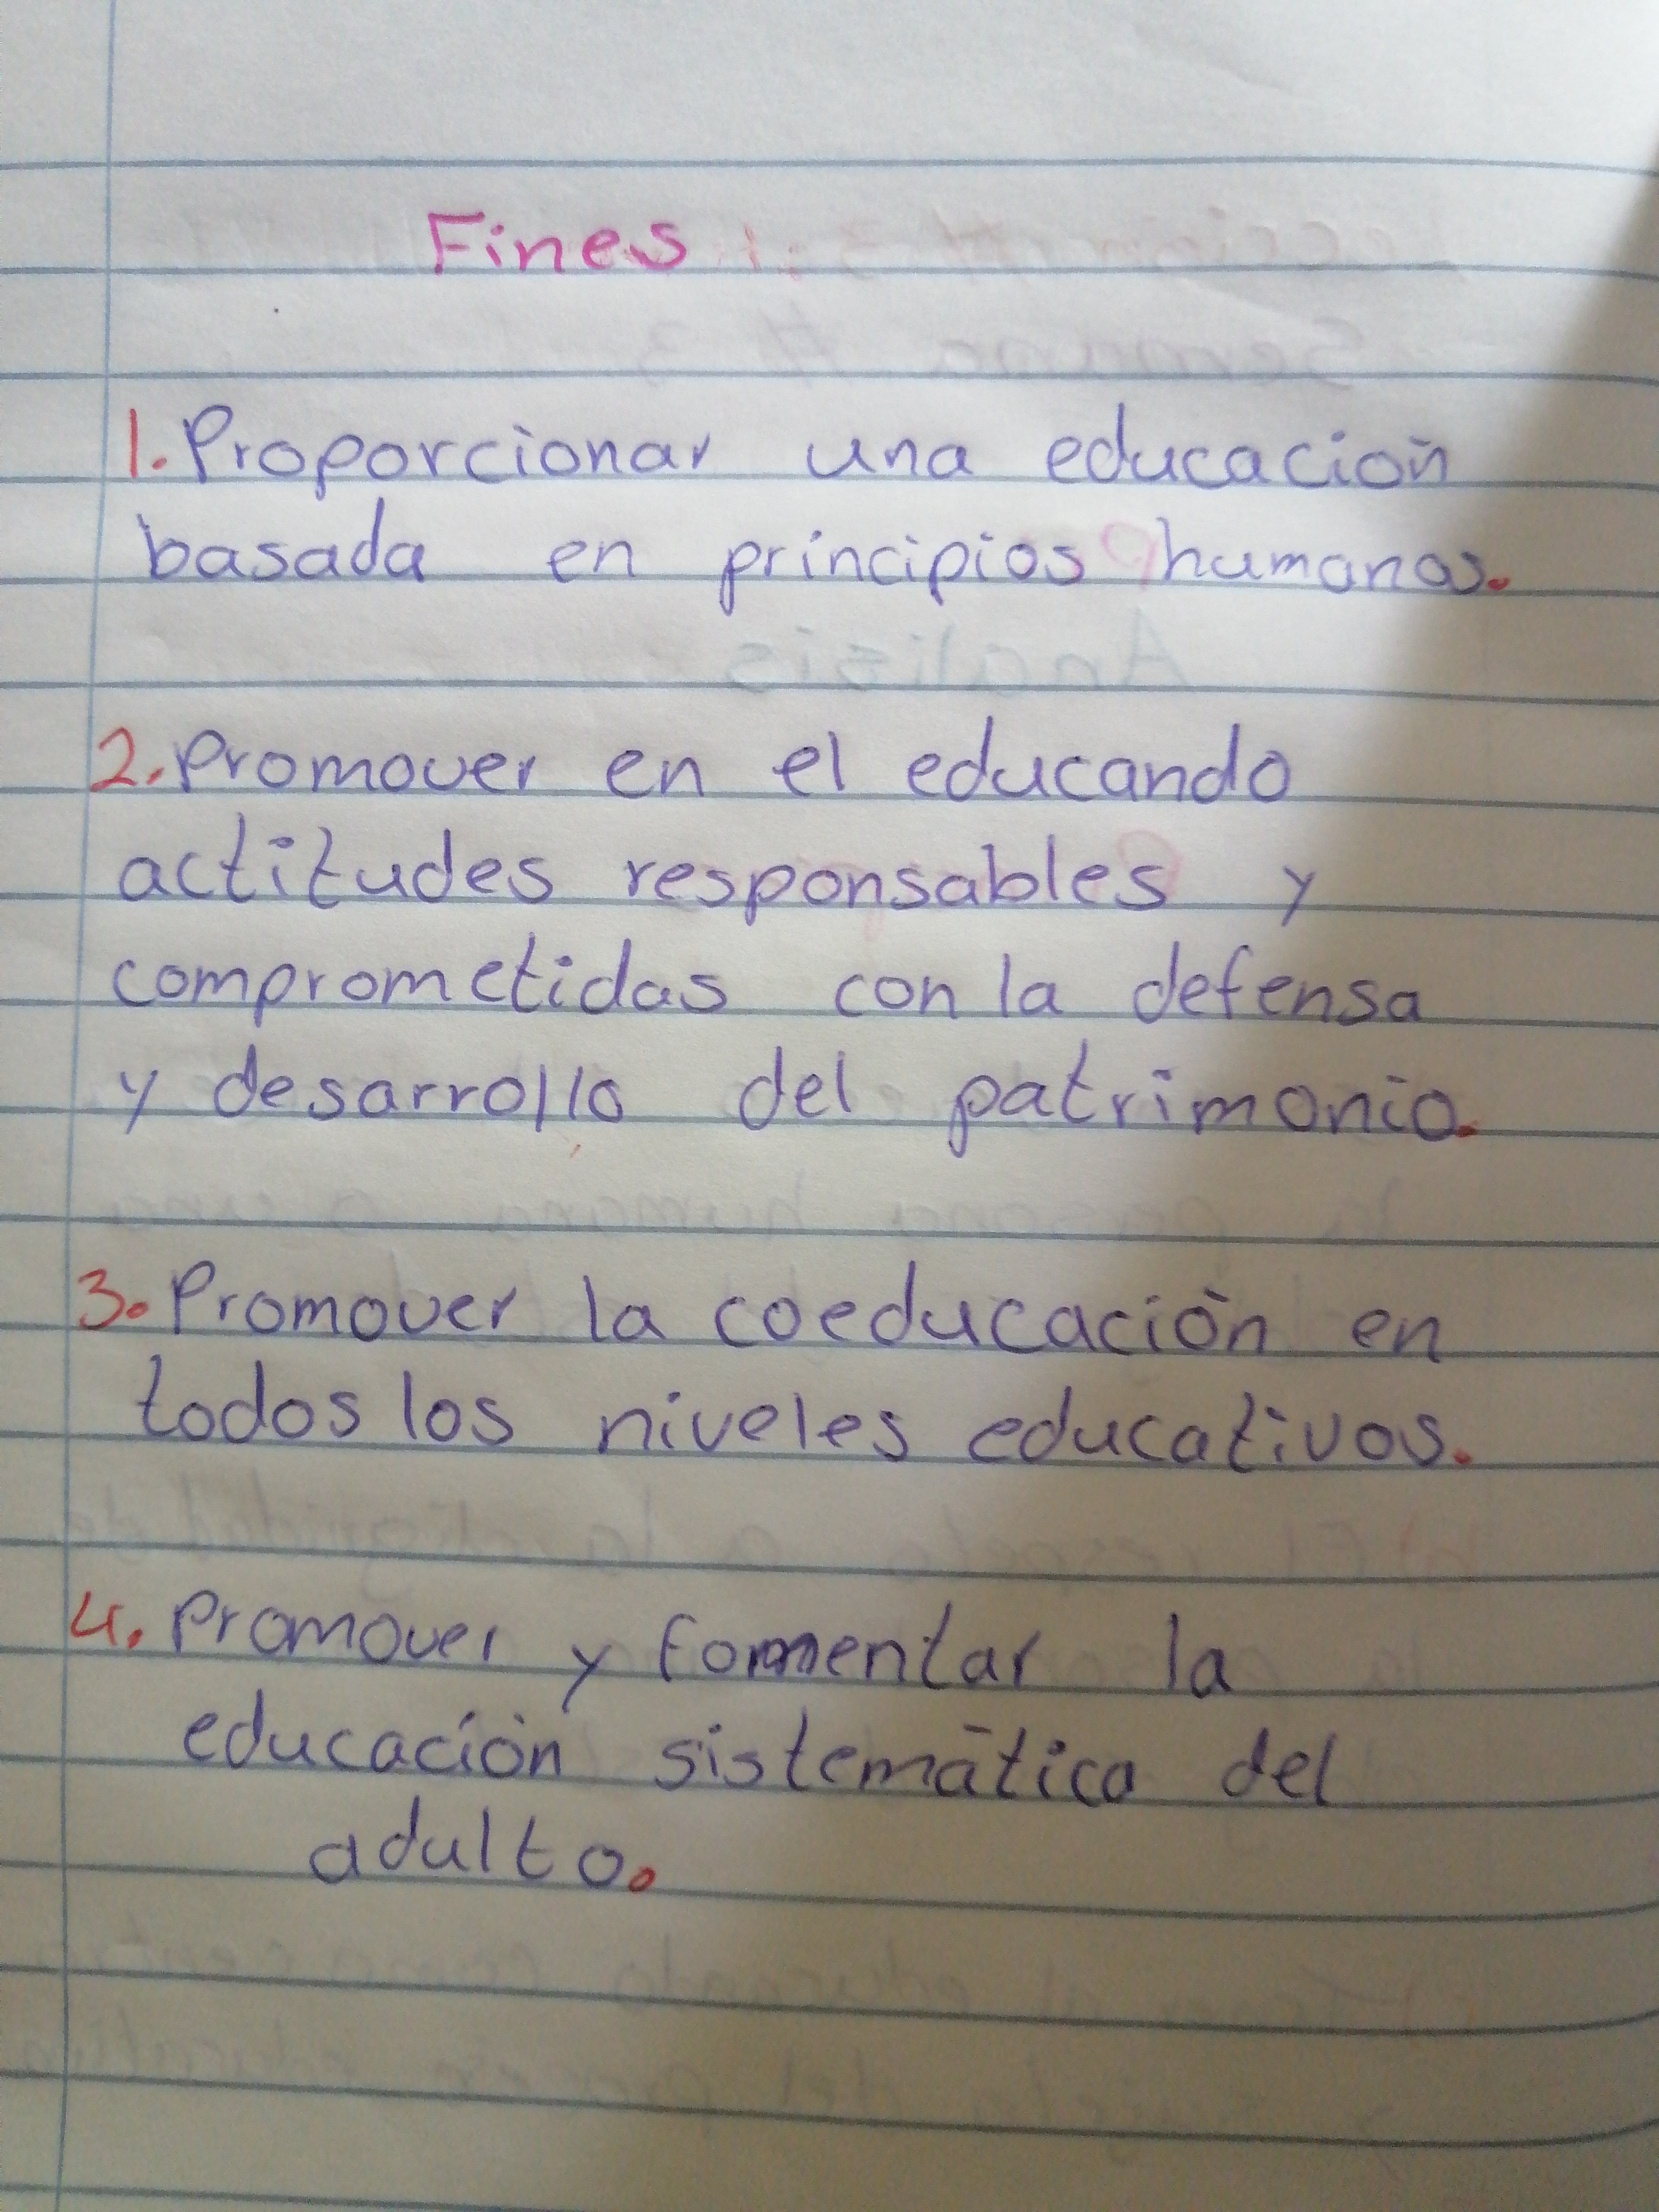 Fines
1. Proporcionar una educación
basada en principios humanos.
2. Promover en el educando
actitudes responsables y
comprometidas con la defensa
y desarrollo del patrimonio.
3. Promover la coeducación en
todos los niveles educativos.
4. Promover y fomentar la
educación sistemática del
adulto.